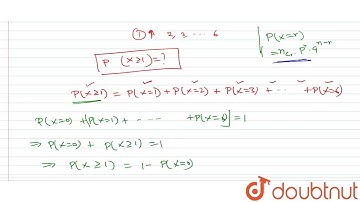 ① ↑ 2, 3 ... 6
P(x=r)
= nCr · P^r · q^n-r
P (x≥1) = ?
P(x≥1) = P(x=1) + P(x=2) + P(x=3) + ... + P(x=6)
P(x=0) + [P(x=1) + ... + P(x=6)] = 1
⇒ P(x=0) + P(x≥1) = 1
⇒ P(x≥1) = 1 - P(x=0)
doubtnut